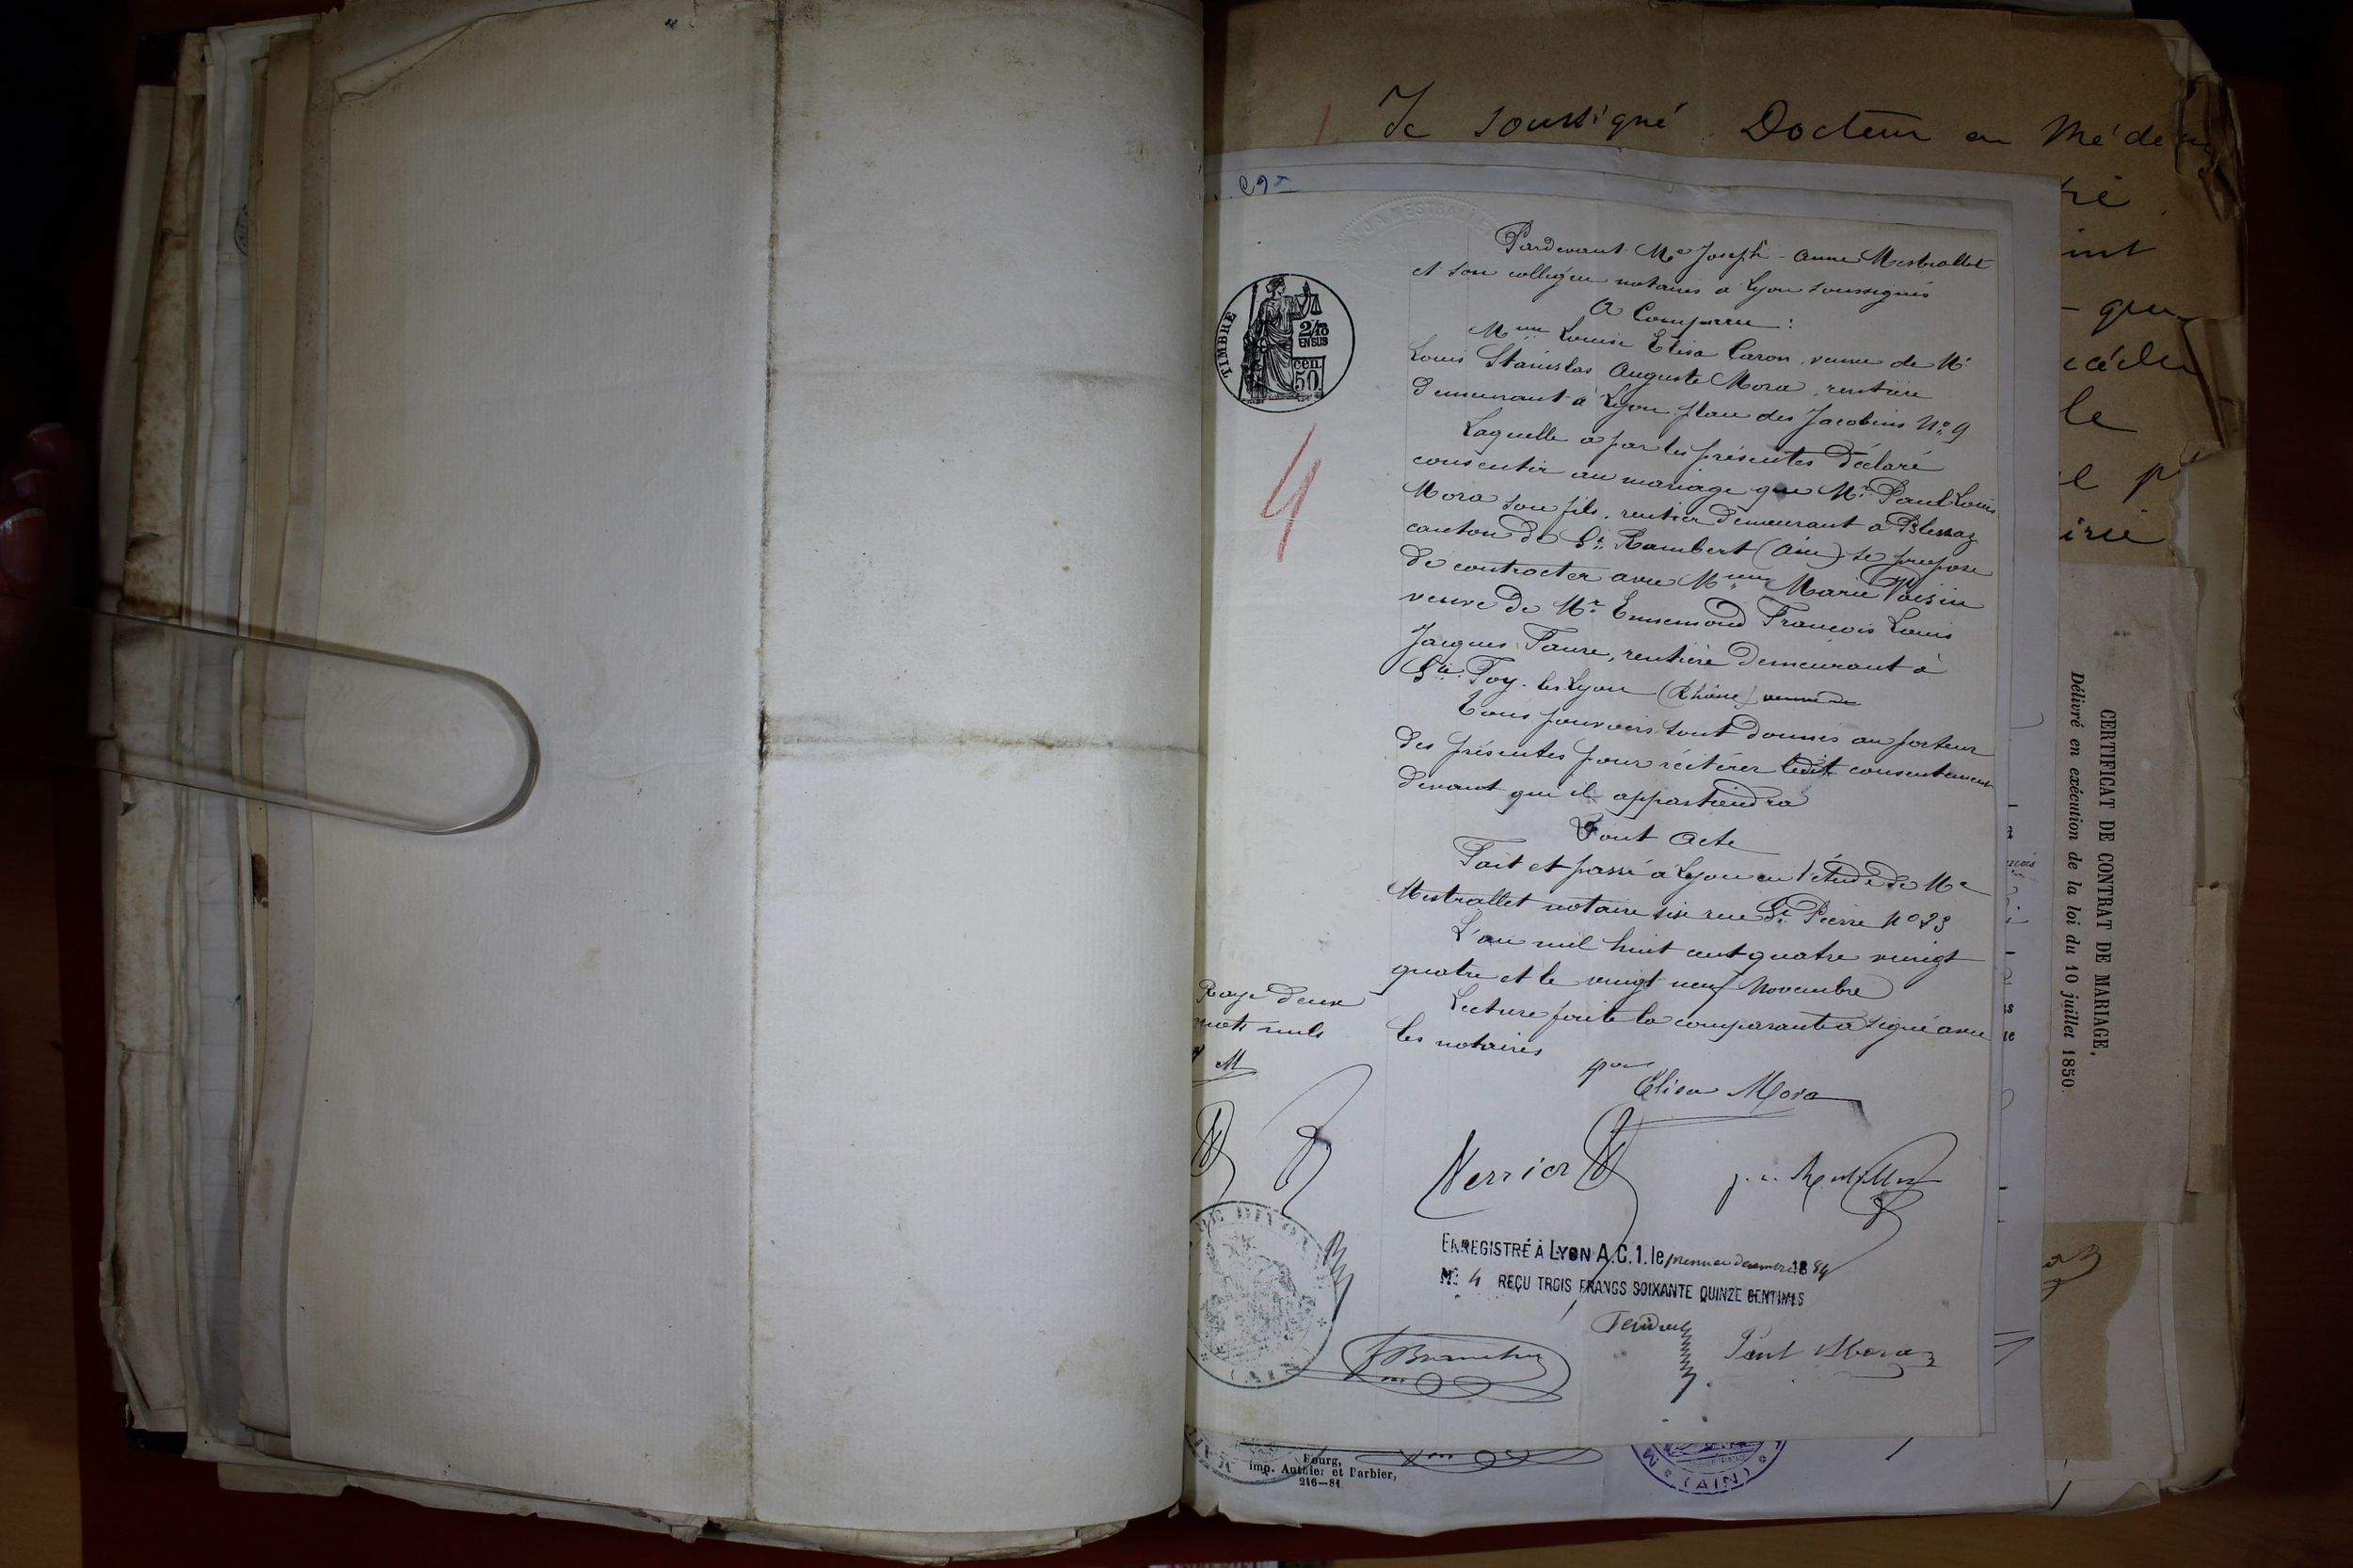 Je soussigné Docteur en Médecin
Pardevant Me Joseph-Anne Mestrallet
et son collègue notaires à Lyon soussignés
A Comparu :
Mme Louise Elisa Caron, veuve de Mr
Louis Stanislas Auguste Mora, rentière
demeurant à Lyon place des Jacobins No 9
Laquelle a par les présentes déclaré
consentir au mariage que Mr Paul Louis
Mora son fils, rentier demeurant à
canton de St Rambert (Ain) se propose
de contracter avec Mme Marie Voisin
veuve de Mr Ennemond François Louis
Jacques Faure, rentière demeurant à
Ste Foy-les-Lyon (Rhône)
Tous pouvoirs sont donnés au porteur
des présentes pour réitérer ledit consentement
devant qui il appartiendra
Dont Acte
Fait et passé à Lyon en l'étude de Me
Mestrallet notaire sise rue St Pierre No 23
L'an mil huit cent quatre vingt
quatre et le vingt neuf Novembre
Lecture faite la comparante a signé avec
les notaires
Rayé deux
mots nuls
M
Elisa Mora
Verrier
ENREGISTRÉ À LYON A.C.1. le premier décembre 1884
No 4 REÇU TROIS FRANCS SOIXANTE QUINZE CENTIMES
Paul Mora
TIMBRE
2/10
EN SUS
cen.
50.
4
Bourg,
imp. Authier et Barbier,
216—84
(AIN)
CERTIFICAT DE CONTRAT DE MARIAGE,
Délivré en exécution de la loi du 10 juillet 1850